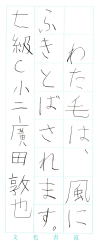 わた毛は、風に
ふきとばされます。
七級C小二廣田敦也